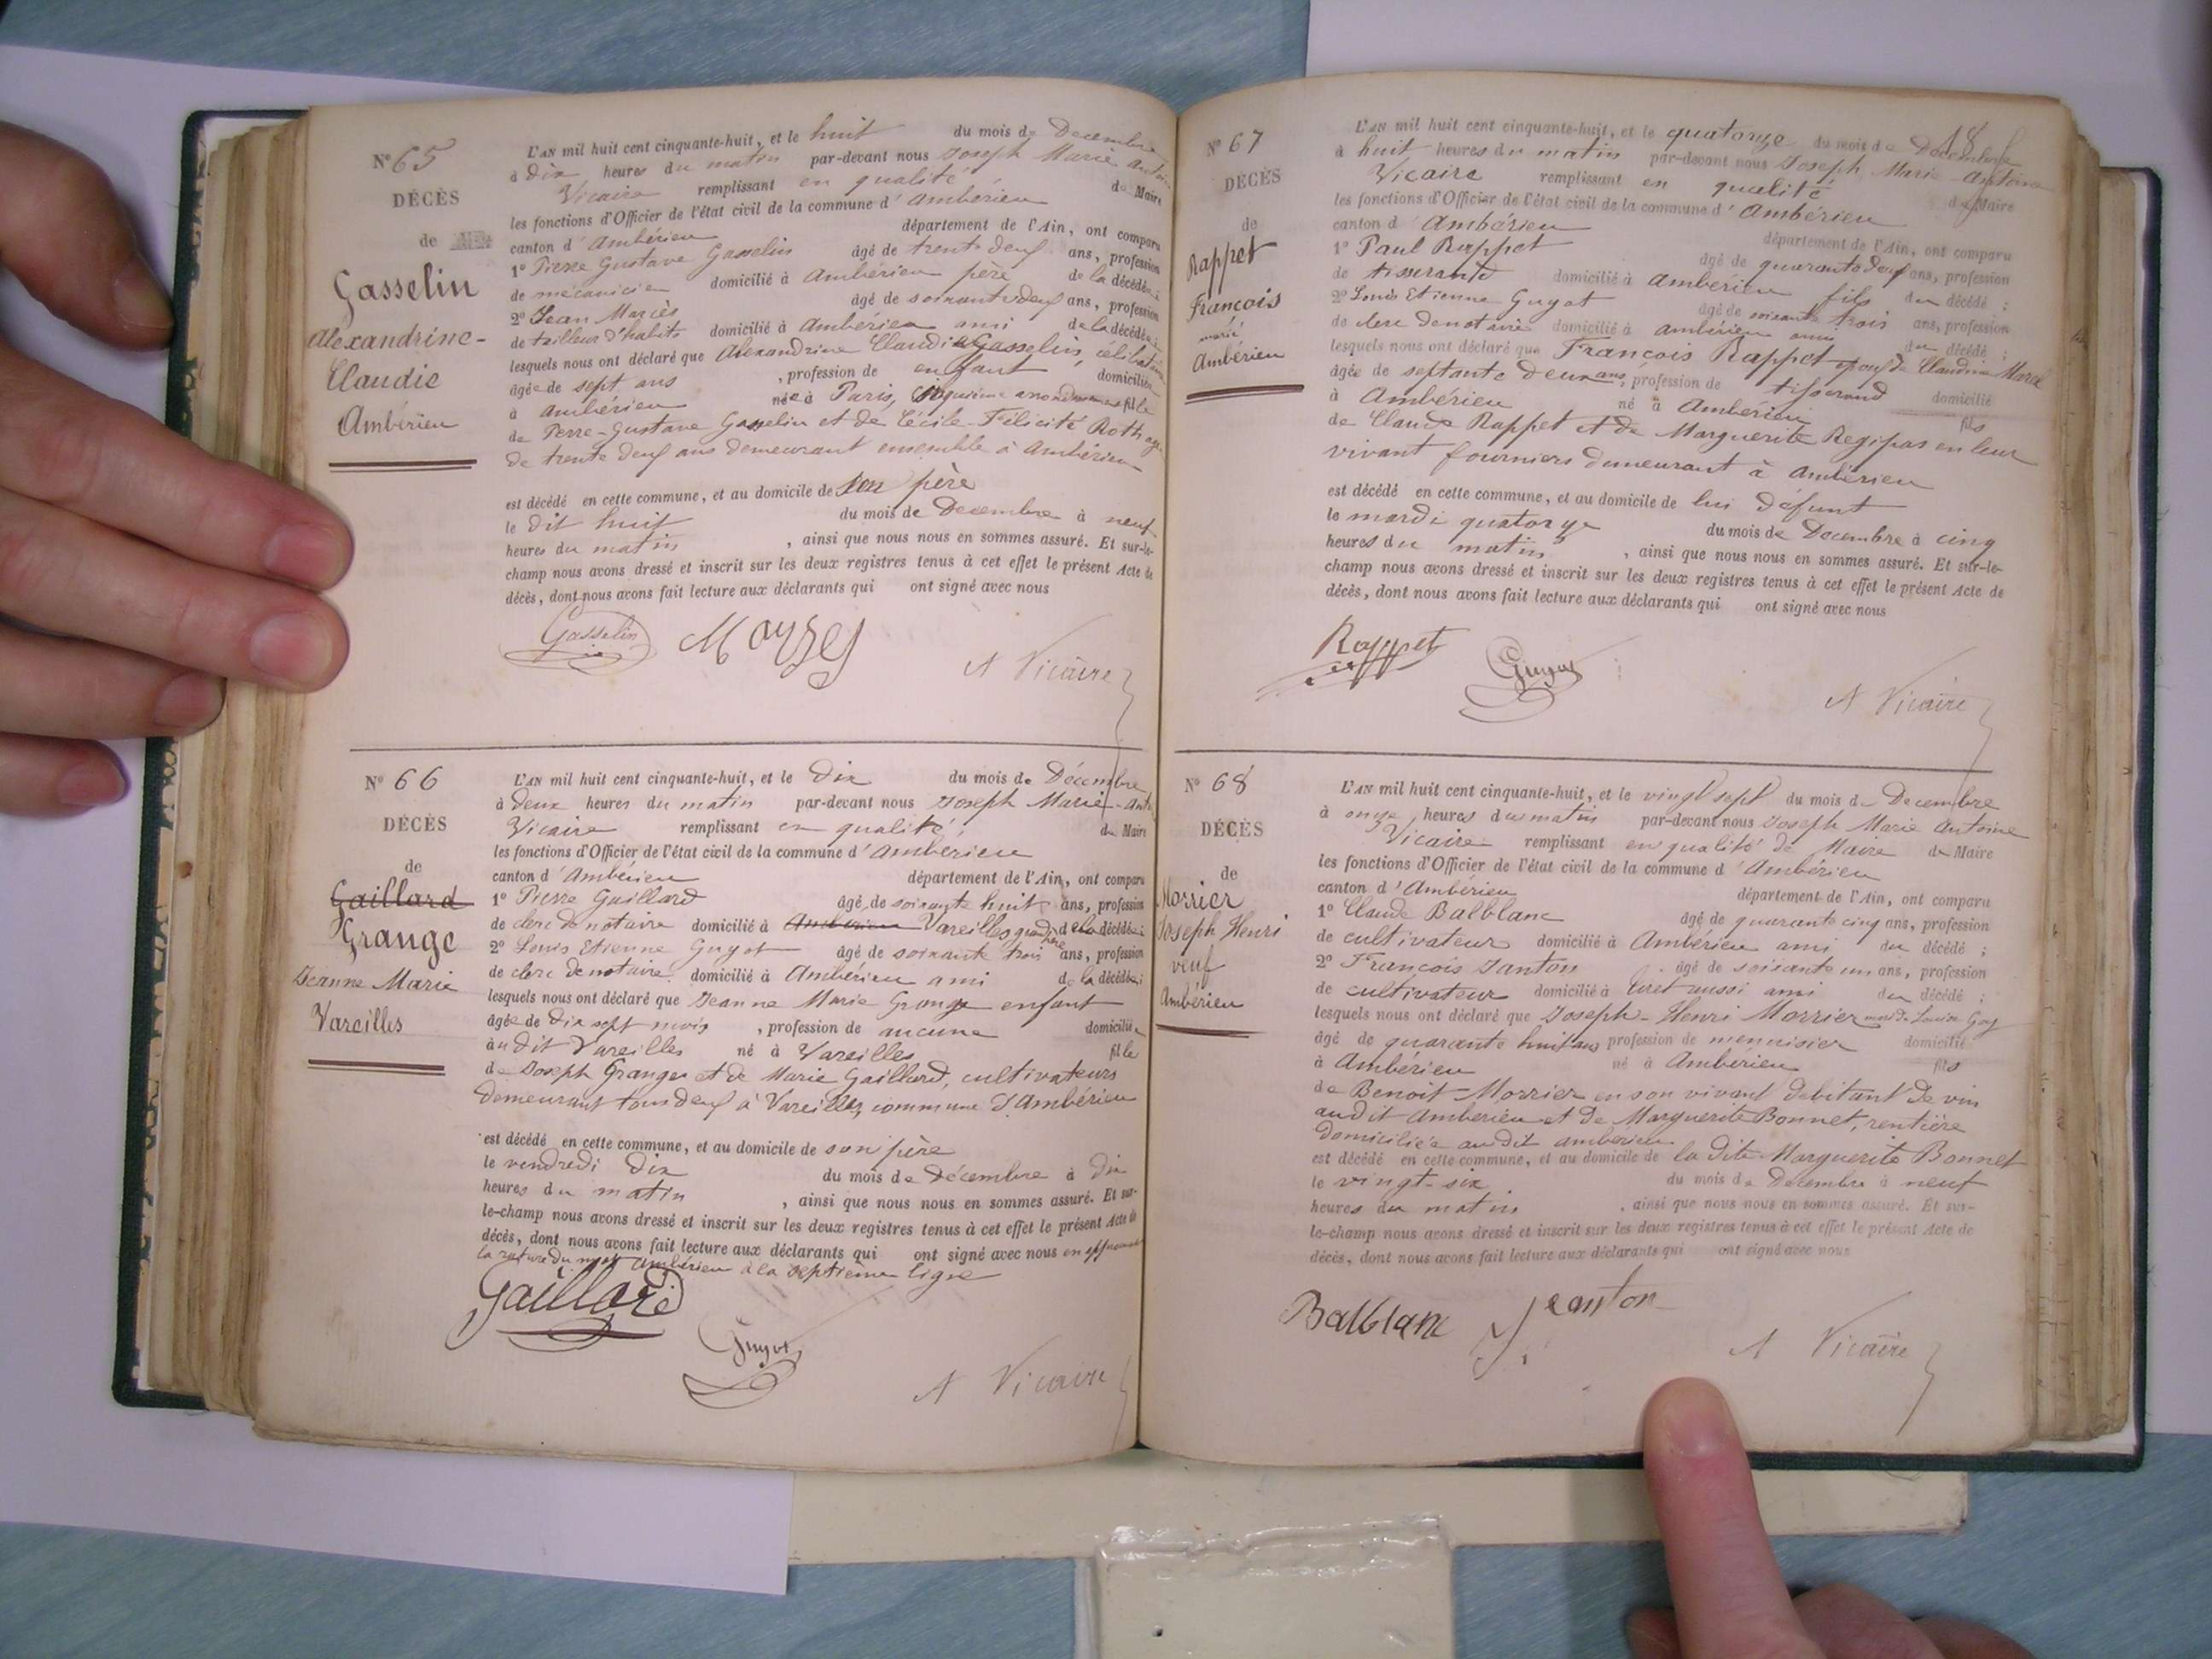 N° 65
DÉCÈS
de
Gasselin
Alexandrine-
Claudie
Ambérieu
L'AN mil huit cent cinquante-huit, et le huit du mois de Décembre
à dix heures du matin par-devant nous Joseph Marie Antoine
Vicaire remplissant en qualité de Maire
les fonctions d'Officier de l'état civil de la commune d'Ambérieu
canton d'Ambérieu département de l'Ain, ont comparu
1° Pierre Gustave Gasselin âgé de trente deux ans, profession
de mécanicien domicilié à Ambérieu père de la décédée ;
2° Jean Mariès âgé de soixante deux ans, profession
de tailleur d'habits domicilié à Ambérieu ami de la décédée ;
lesquels nous ont déclaré que Alexandrine Claudie Gasselin, célibataire
âgée de sept ans , profession de enfant domiciliée
à Ambérieu née à Paris, arrondissement fille
de Pierre-Gustave Gasselin et de Cécile-Félicité
de trente deux ans demeurant ensemble à Ambérieu
est décédé en cette commune, et au domicile de son père
le dit huit du mois de Décembre à neuf
heures du matin , ainsi que nous nous en sommes assuré. Et sur-le-
champ nous avons dressé et inscrit sur les deux registres tenus à cet effet le présent Acte de
décès, dont nous avons fait lecture aux déclarants qui ont signé avec nous
Gasselin A Vicaire
N° 66
DÉCÈS
de
Gaillard
Grange
Jeanne Marie
Vareilles
L'AN mil huit cent cinquante-huit, et le dix du mois de Décembre
à deux heures du matin par-devant nous Joseph Marie-Ant
Vicaire remplissant en qualité, de Maire
les fonctions d'Officier de l'état civil de la commune d'Ambérieu
canton d'Ambérieu département de l'Ain, ont comparu
1° Pierre Gaillard âgé de soixante huit ans, profession
de clerc de notaire domicilié à Ambérieu Vareilles grand père de la décédée ;
2° Louis Etienne Guyot âgé de soixante trois ans, profession
de clerc de notaire domicilié à Ambérieu ami de la décédée ;
lesquels nous ont déclaré que Jeanne Marie Grange enfant
âgée de dix sept mois , profession de aucune domiciliée
au dit Vareilles né à Vareilles fille
de Joseph Grange et de Marie Gaillard, cultivateurs
demeurant tous deux à Vareilles, commune d'Ambérieu
est décédé en cette commune, et au domicile de son père
le vendredi dix du mois de Décembre à dix
heures du matin , ainsi que nous nous en sommes assuré. Et sur-
le-champ nous avons dressé et inscrit sur les deux registres tenus à cet effet le présent Acte de
décès, dont nous avons fait lecture aux déclarants qui ont signé avec nous en approuvant
la rature du mot Ambérieu à la septième ligne
Gaillard Guyot A Vicaire
N° 67
DÉCÈS
de
Rappet
François
marié
Ambérieu
L'AN mil huit cent cinquante-huit, et le quatorze du mois de Décembre
à huit heures du matin par-devant nous Joseph Marie Antoine
Vicaire remplissant en qualité de Maire
les fonctions d'Officier de l'état civil de la commune d'Ambérieu
canton d'Ambérieu département de l'Ain, ont comparu
1° Paul Rappet âgé de quarante deux ans, profession
de tisserand domicilié à Ambérieu fils du décédé ;
2° Louis Etienne Guyot âgé de soixante trois ans, profession
de clerc de notaire domicilié à Ambérieu ami du décédé ;
lesquels nous ont déclaré que François Rappet époux de Claudine Marel
âgée de septante deux ans, profession de tisserand domicilié
à Ambérieu né à Ambérieu fils
de Claude Rappet et de Marguerite Regipas en leur
vivant fourniers demeurant à Ambérieu
est décédé en cette commune, et au domicile de lui défunt
le mardi quatorze du mois de Décembre à cinq
heures du matin , ainsi que nous nous en sommes assuré. Et sur-le-
champ nous avons dressé et inscrit sur les deux registres tenus à cet effet le présent Acte de
décès, dont nous avons fait lecture aux déclarants qui ont signé avec nous
Rappet Guyot A Vicaire
N° 68
DÉCÈS
de
Morrier
Joseph Henri
veuf
Ambérieu
L'AN mil huit cent cinquante-huit, et le vingt sept du mois de Décembre
à onze heures du matin par-devant nous Joseph Marie Antoine
Vicaire remplissant en qualité de Maire de Maire
les fonctions d'Officier de l'état civil de la commune d'Ambérieu
canton d'Ambérieu département de l'Ain, ont comparu
1° Claude Balblanc âgé de quarante cinq ans, profession
de cultivateur domicilié à Ambérieu ami du décédé ;
2° François Janton âgé de soixante un ans, profession
de cultivateur domicilié à aussi ami du décédé ;
lesquels nous ont déclaré que Joseph-Henri Morrier Louise Goy
âgé de quarante huit ans profession de menuisier domicilié
à Ambérieu né à Ambérieu fils
de Benoit Morrier en son vivant debitant de vin
audit Ambérieu et de Marguerite Bonnet, rentière
domiciliée audit Ambérieu
est décédé en cette commune, et au domicile de la dite Marguerite Bonnet
le vingt-six du mois de Décembre à neuf
heures du matin , ainsi que nous nous en sommes assuré. Et sur-
le-champ nous avons dressé et inscrit sur les deux registres tenus à cet effet le présent Acte de
décès, dont nous avons fait lecture aux déclarants qui ont signé avec nous
Balblanc Jeanton A Vicaire